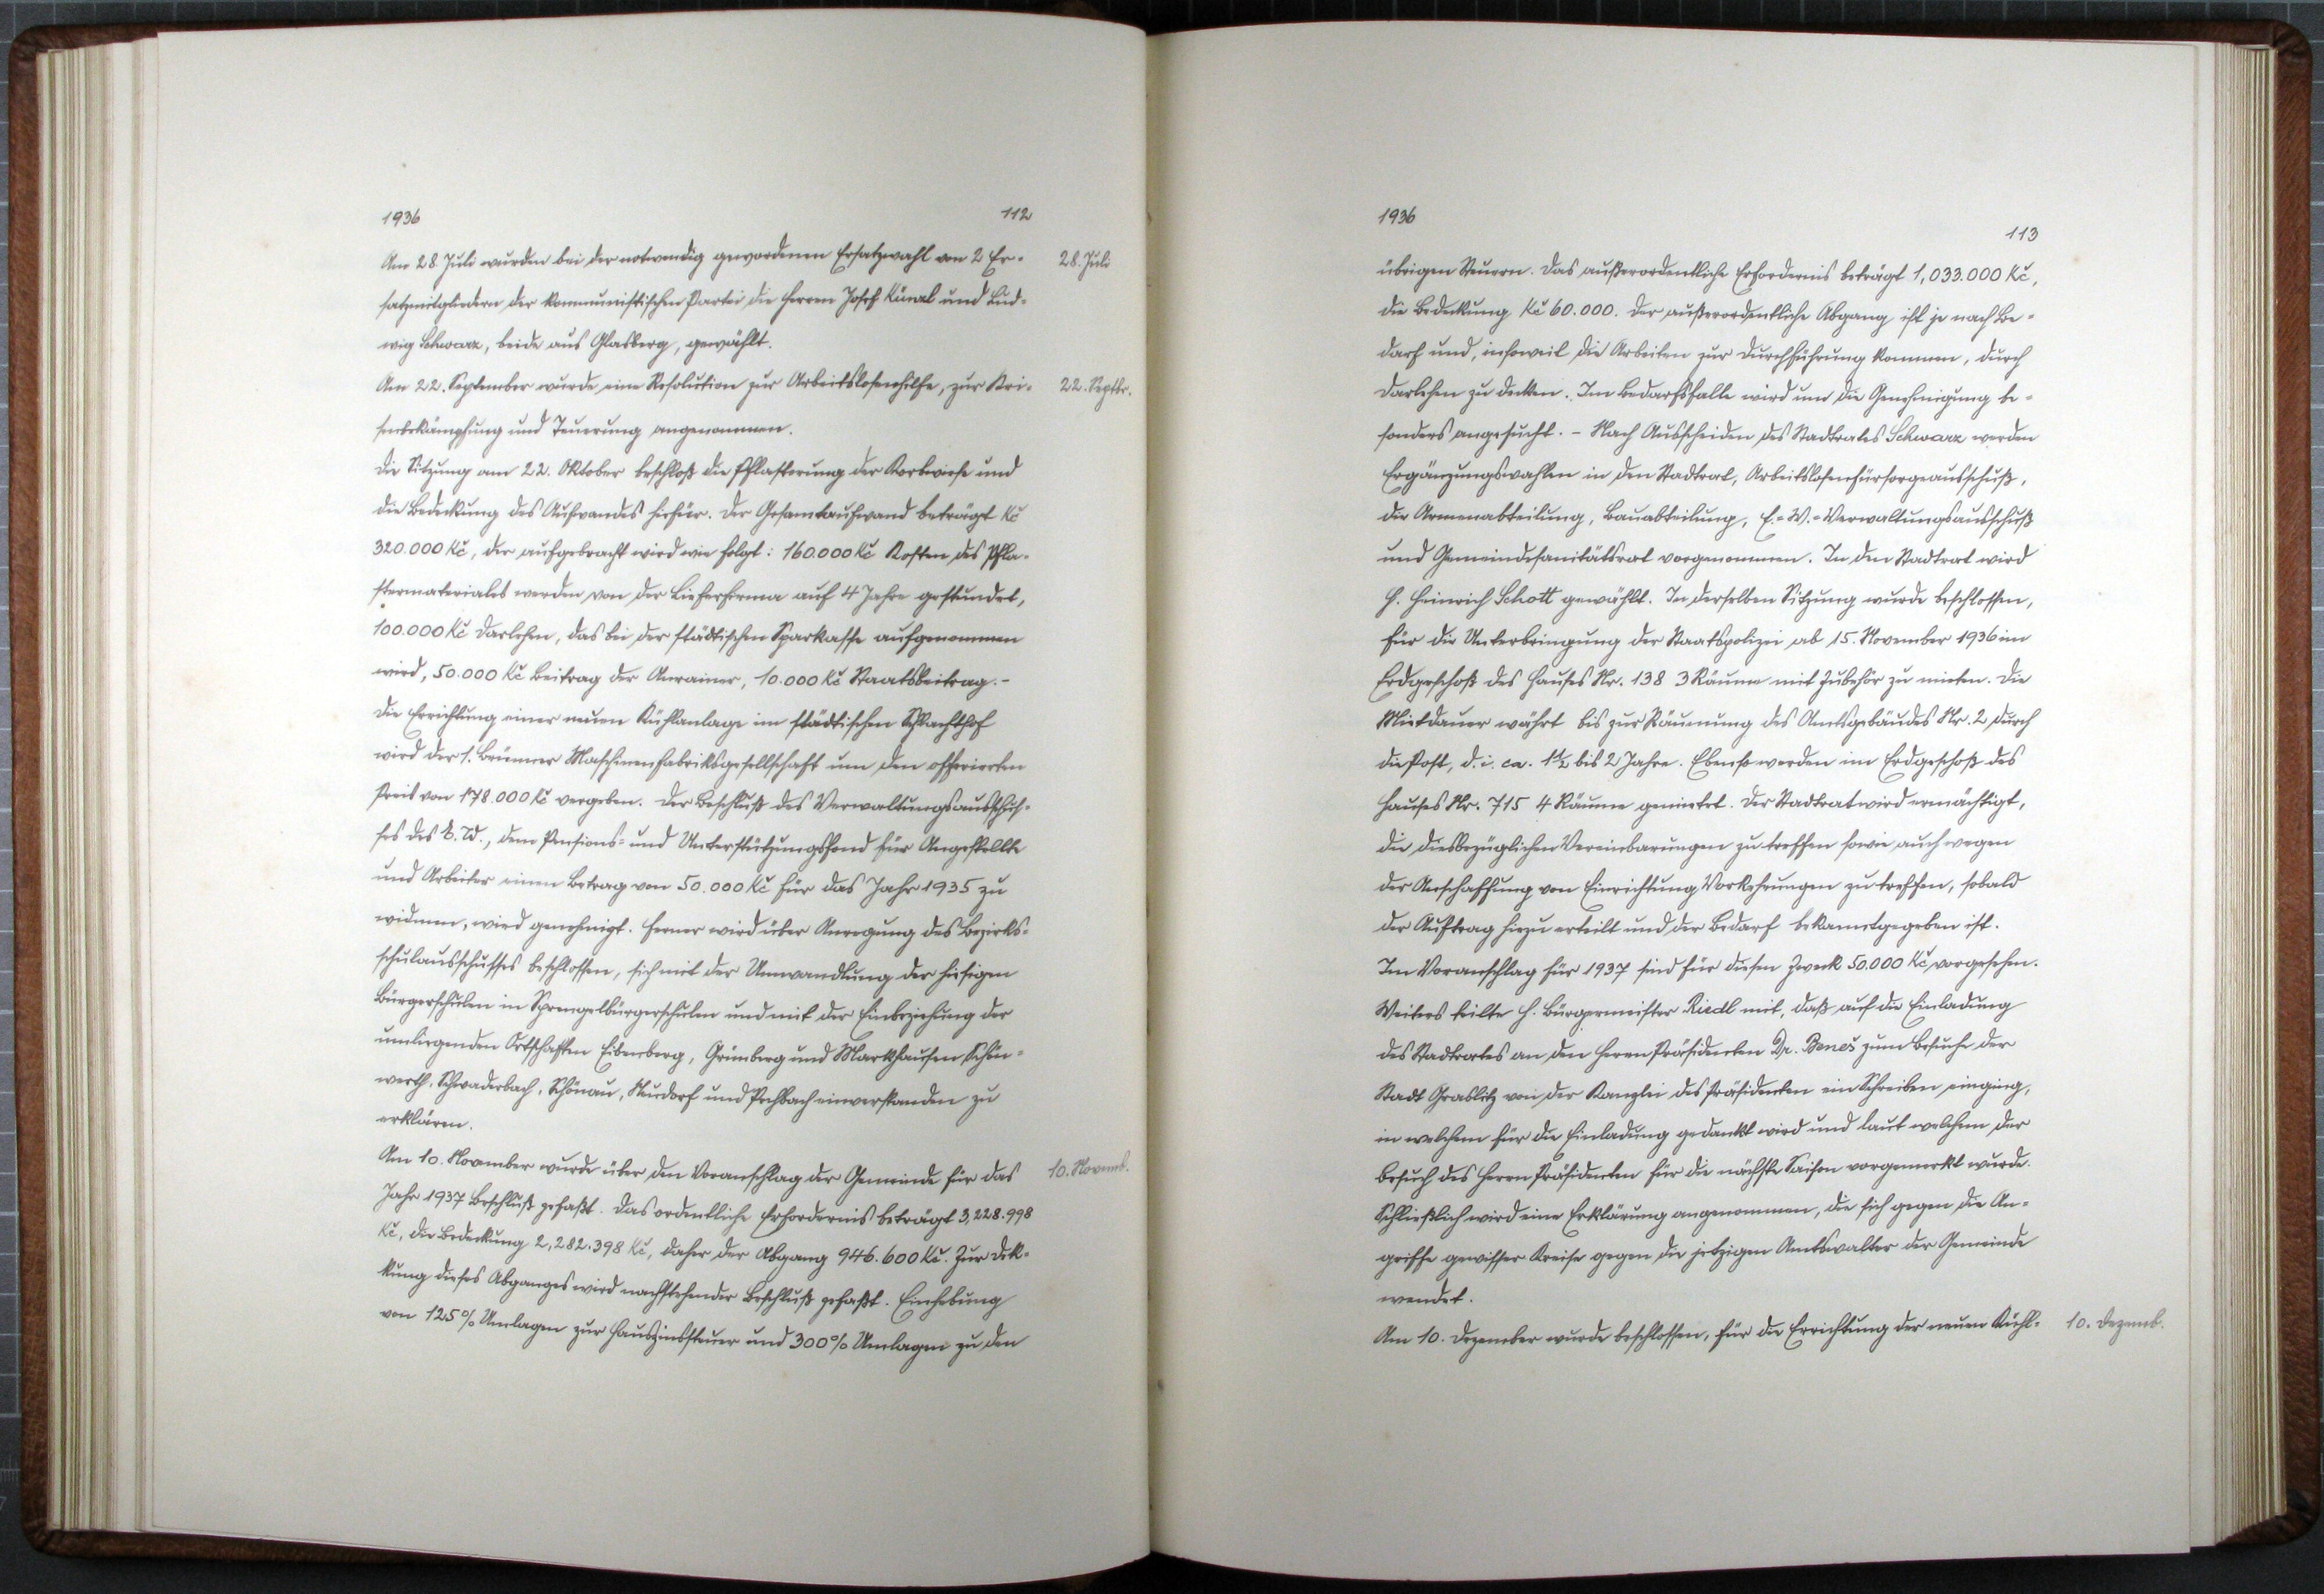 1936
112
Am 28. Juli wurden bei der notwendig gewordenen Ersatzwahl von 2 Er-
28. Juli
satzmitgliedern der kommunistischen Partei die Herren Josef Künzl und Lud-
wig Schwarz, beide aus Glasberg, gewählt.
Am 22. September wurde eine Resolution zur Arbeitslosenhilfe, zur Kri-
22. Septbr.
senbekämpfung und Teuerung angenommen.
Die Sitzung am 22. Oktober beschloß die Pflasterung der Korbwiese und
die Bedeckung des Aufwandes hiefür. Der Gesamtaufwand beträgt Kč
320.000 Kč, der aufgebracht wird wie folgt: 160.000 Kč Kosten des Pfla-
stermateriales werden von der Lieferfirma auf 4 Jahre gestundet,
100.000 Kč Darlehen, das bei der städtischen Sparkasse aufgenommen
wird, 50.000 Kč Beitrag der Anrainer, 10.000 Kč Staatsbeitrag. -
Die Errichtung einer neuen Kühlanlage im städtischen Schlachthof
wird der 1. Brünner Maschinenfabriksgesellschaft um den offerierten
Preis von 178.000 Kč vergeben. Der Beschluß des Verwaltungsausschus-
ses des E. W., dem Pensions- und Unterstützungsfond für Angestellte
und Arbeiter einen Betrag von 50.000 Kč für das Jahr 1935 zu
widmen, wird genehmigt. Ferner wird über Anregung des Bezirks-
schulausschusses beschlossen, sich mit der Umwandlung der hiesigen
Bürgerschulen in Sprengelbürgerschulen und mit der Einbeziehung der
umliegenden Ortschaften Eibenberg, Grünberg und Markhausen, Schön-
werth, Schwaderbach, Schönau, Neudorf und Pechbach einverstanden zu
erklären.
Am 10. November wurde über den Voranschlag der Gemeinde für das
10. Novemb.
Jahr 1937 Beschluß gefaßt. Das ordentliche Erfordernis beträgt 3,228.998
Kč, die Bedeckung 2,282.398 Kč, daher der Abgang 946.600 Kč. Zur Dek-
kung dieses Abganges wird nachstehender Beschluß gefaßt. Einhebung
von 125% Umlagen zur Hauszinssteuer und 300% Umlagen zu den
1936
113
übrigen Steuern. Das außerordentliche Erfordernis beträgt 1,033.000 Kč,
die Bedeckung Kč 60.000. Der außerordentliche Abgang ist je nach Be-
darf und, insoweit die Arbeiten zur Durchführung kommen, durch
Darlehen zu decken. Im Bedarfsfalle wird um die Genehmigung be-
sonders angesucht. - Nach Ausscheiden des Stadtrates Schwarz werden
Ergänzungswahlen in den Stadtrat, Arbeitslosenfürsorgeausschuß,
die Armenabteilung, Bauabteilung, E.-W.-Verwaltungsausschuß
und Gemeindesanitätsrat vorgenommen. In den Stadtrat wird
H. Heinrich Schott gewählt. In derselben Sitzung wurde beschlossen,
für die Unterbringung der Staatspolizei ab 15. November 1936 im
Erdgeschoß des Hauses Nr. 138 3 Räume mit Zubehör zu mieten. Die
Mietdauer währt bis zur Räumung des Amtsgebäudes Nr. 2 durch
die Post, d. i. ca. 1½ bis 2 Jahre. Ebenso werden im Erdgeschoß des
Hauses Nr. 715 4 Räume gemietet. Der Stadtrat wird ermächtigt,
die diesbezüglichen Vereinbarungen zu treffen sowie auch wegen
der Anschaffung von Einrichtung Vorkehrungen zu treffen, sobald
der Auftrag hiezu erteilt und der Bedarf bekanntgegeben ist.
Im Voranschlag für 1937 sind für diesen Zweck 50.000 Kč vorgesehen.
Weiters teilte H. Bürgermeister Riedl mit, daß auf die Einladung
des Stadtrates an den Herrn Präsidenten Dr. Beneš zum Besuche der
Stadt Graslitz von der Kanzlei des Präsidenten ein Schreiben einging,
in welchem für die Einladung gedankt wird und laut welchem der
Besuch des Herrn Präsidenten für die nächste Saison vorgemerkt wurde.
Schließlich wird eine Erklärung angenommen, die sich gegen die An-
griffe gewisser Kreise gegen die jetzigen Amtswalter der Gemeinde
wendet.
Am 10. Dezember wurde beschlossen, für die Errichtung der neuen Kühl-
10. Dezemb.